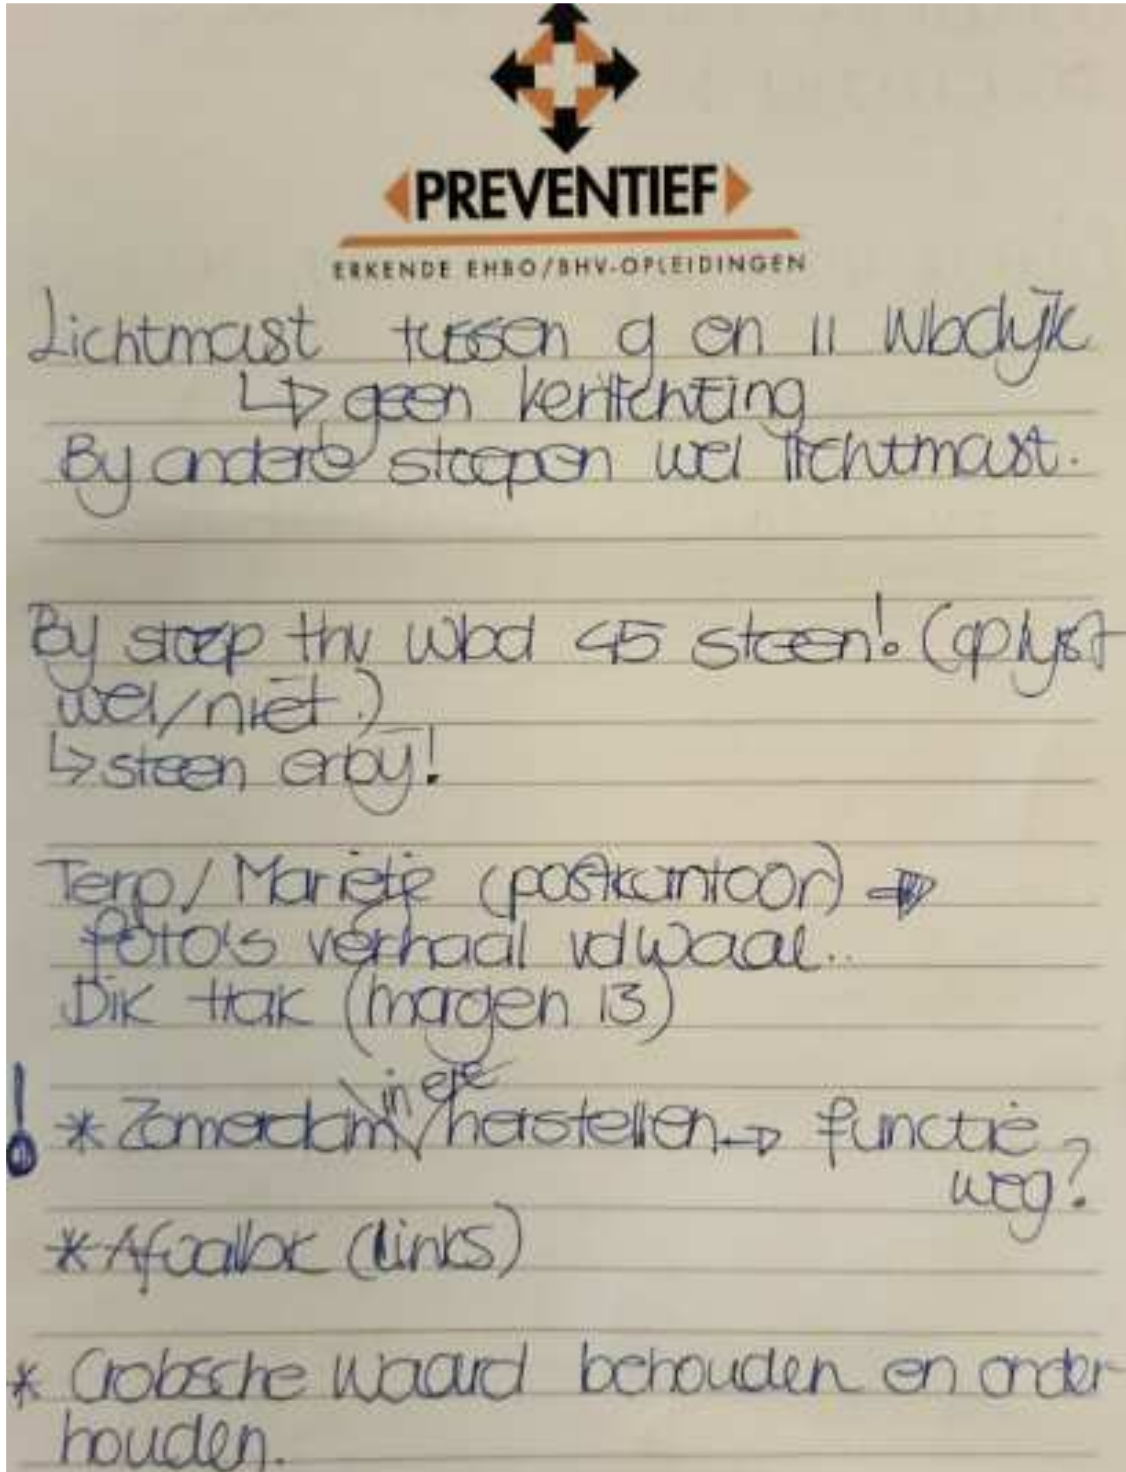 PREVENTIEF
ERKENDE EHBO/BHV-OPLEIDINGEN
Lichtmast tussen 9 en 11 Wbdijk
↳ geen verlichting
By andere stoepen wel lichtmast.
By stoep thv wbd 45 steen! (op lyst
wel/niet.)
↳ steen erbij!
Terp/Marietje (postkantoor) →
foto's verhaal vd Waal..
Dik Hak (margen 13)
! * Zomerdam in ere herstellen → functie
weg?
* Afvalbak (links)
* Crobsche Waard behouden en onder-
houden.